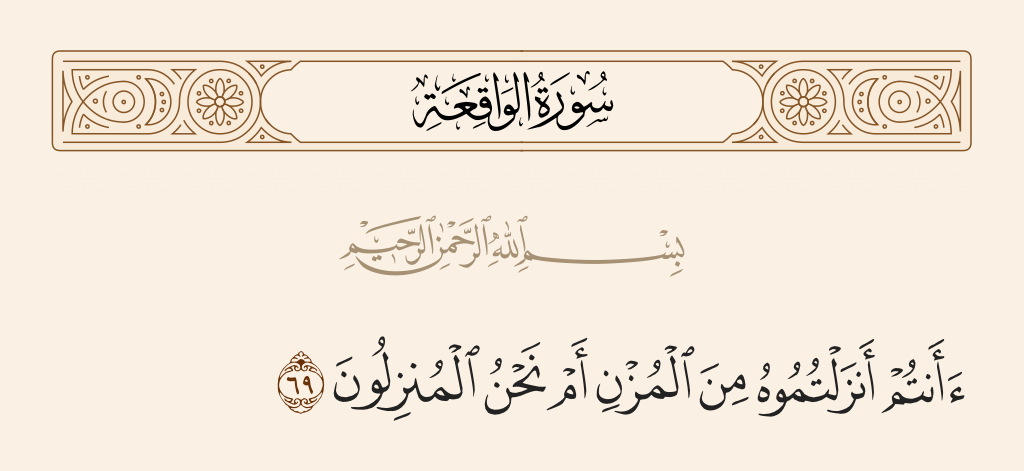 سُورَةُ الوَاقِعَةِ
بِسْمِ ٱللَّهِ ٱلرَّحْمَٰنِ ٱلرَّحِيمِ
ءَأَنتُمْ أَنزَلْتُمُوهُ مِنَ ٱلْمُزْنِ أَمْ نَحْنُ ٱلْمُنزِلُونَ ٦٩